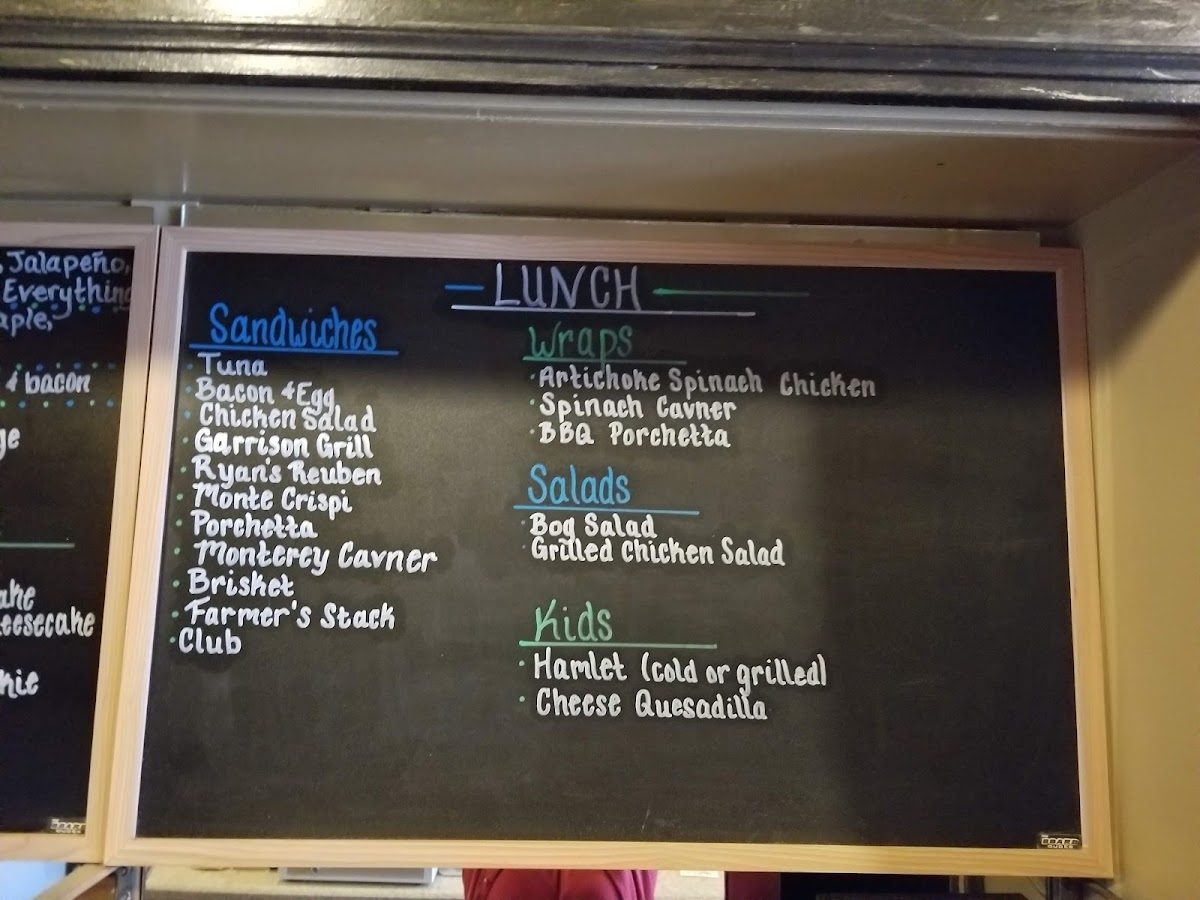 Jalapeño,
Everything
& bacon
LUNCH
Sandwiches
Tuna
Bacon & Egg
Chicken Salad
Garrison Grill
Ryan's Reuben
Monte Crispi
Porchetta
Monterey Cavner
Brisket
Farmer's Stack
Club
Wraps
Artichoke Spinach Chicken
Spinach Cavner
BBQ Porchetta
Salads
Bog Salad
Grilled Chicken Salad
Kids
Hamlet (cold or grilled)
Cheese Quesadilla